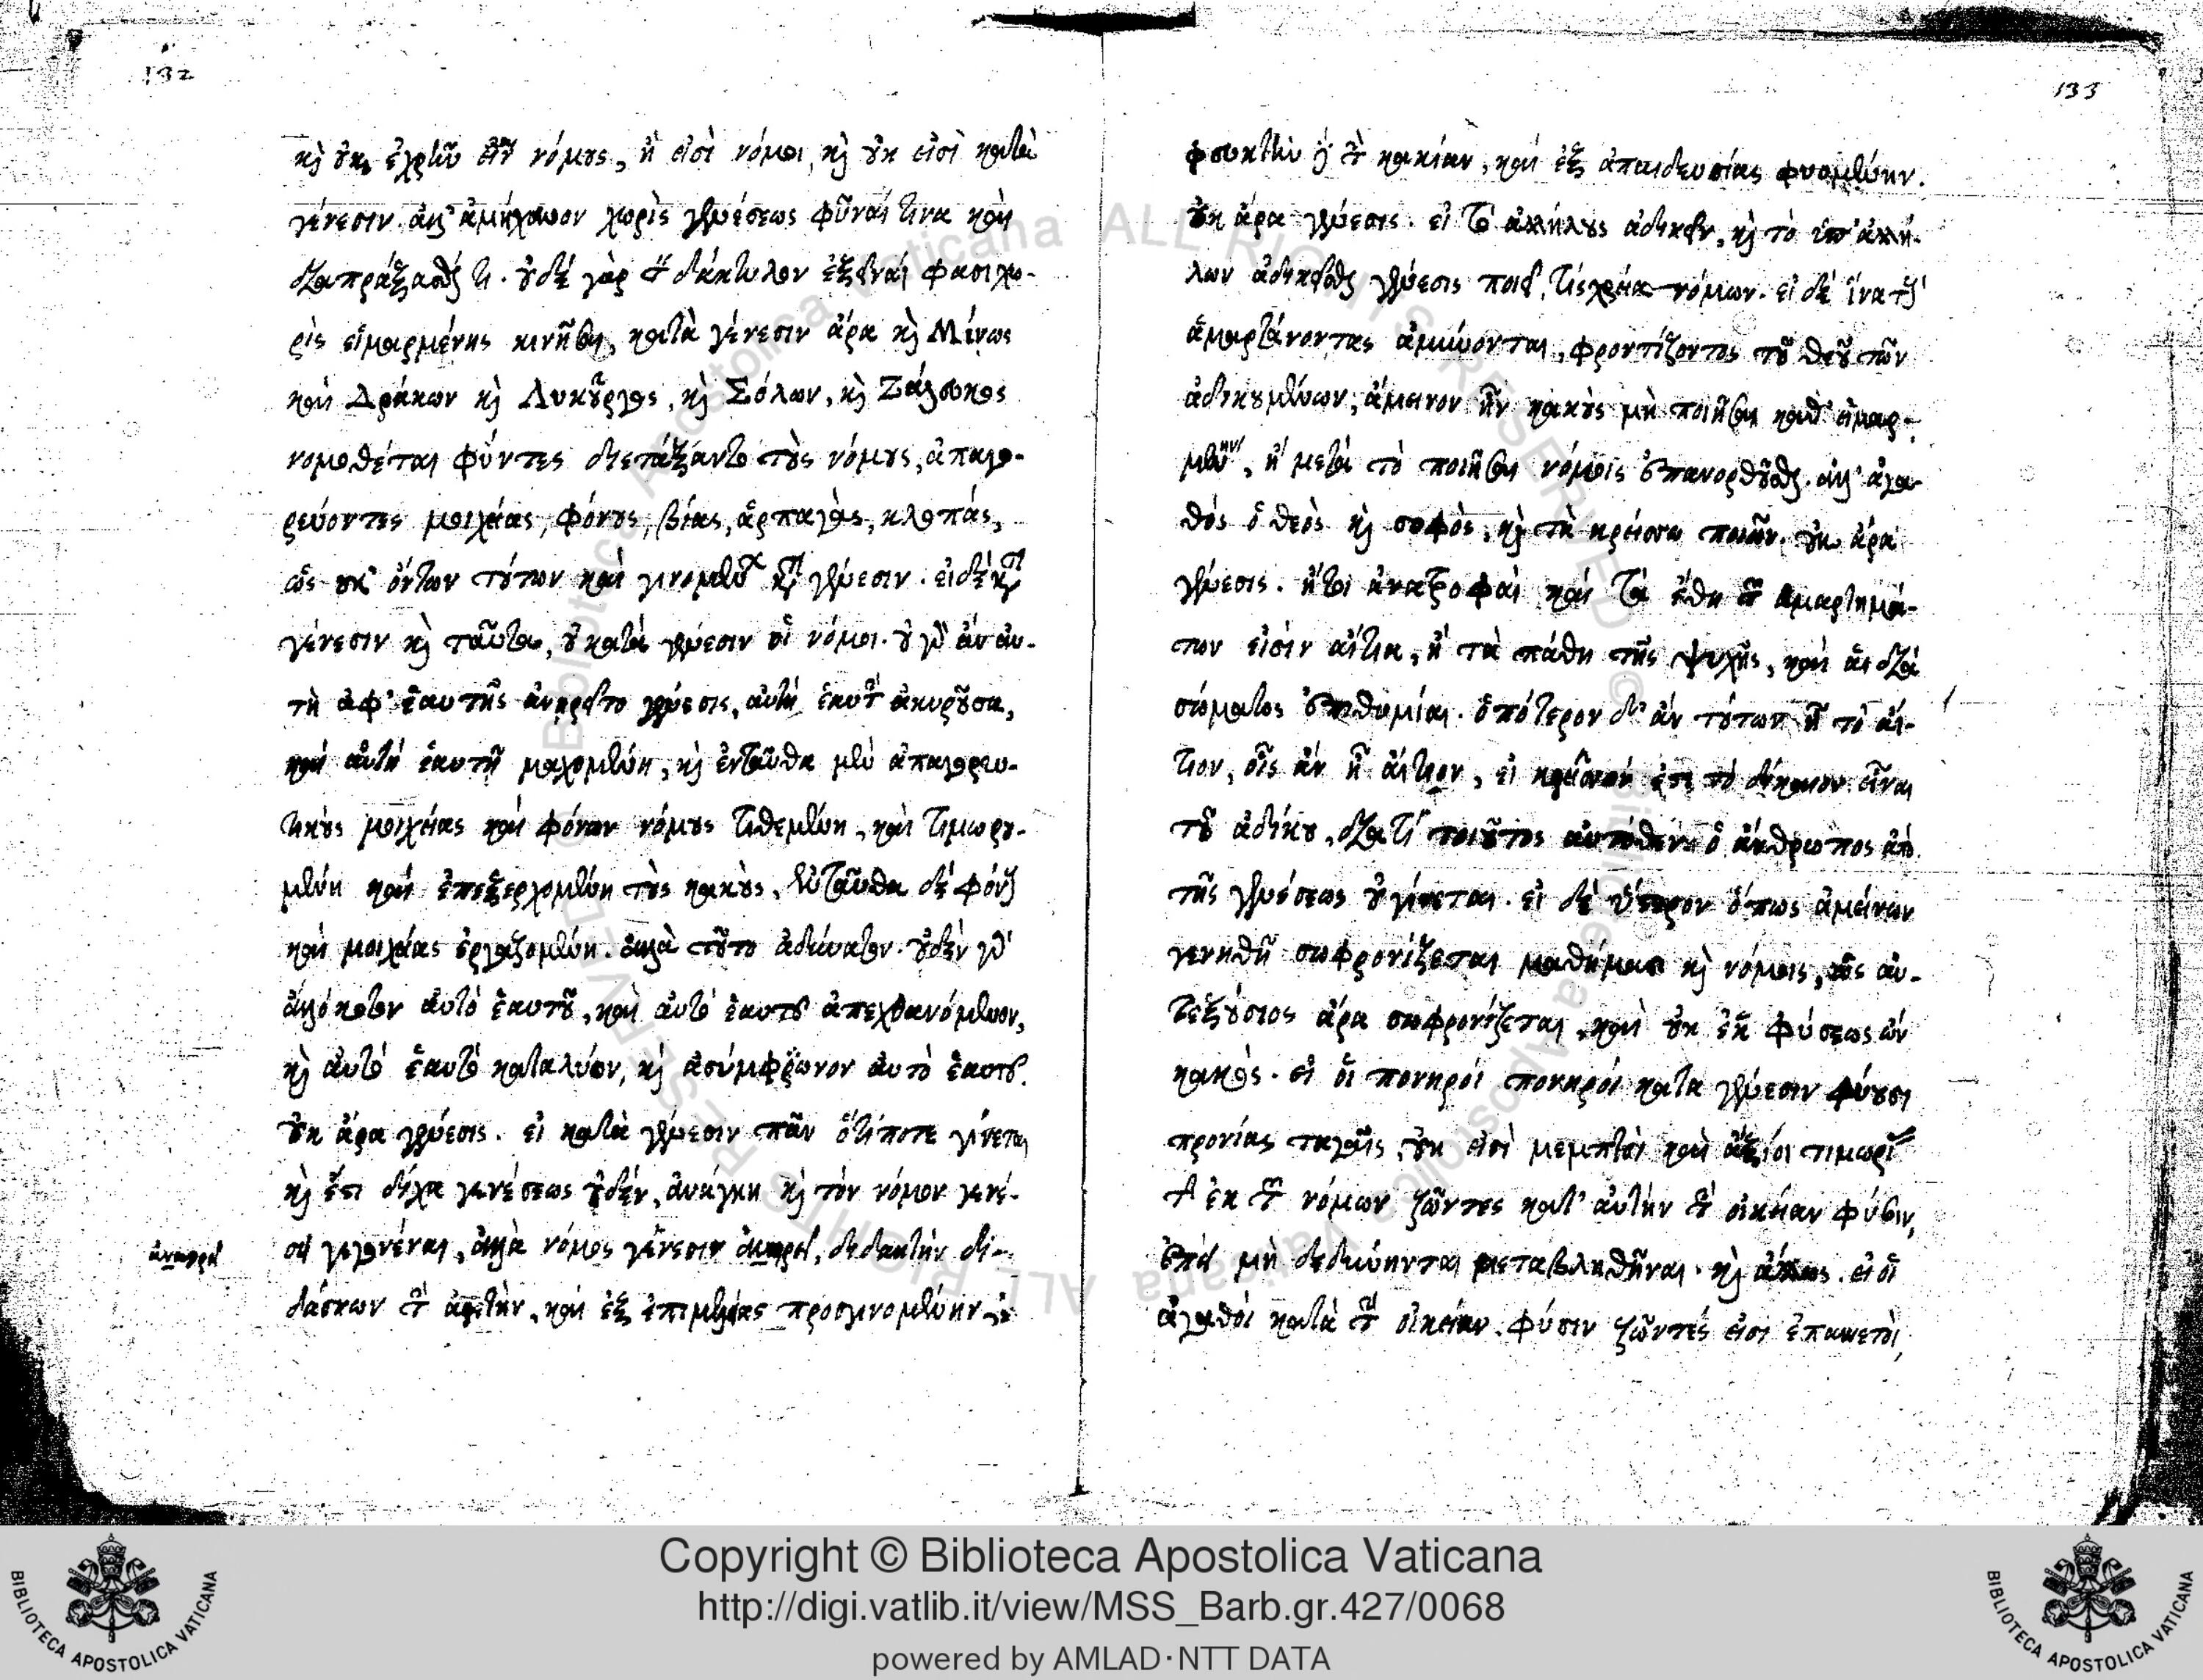 132
κὶ οὐκ ἐχρῆν εἶναι νόμους, ἢ εἰσὶ νόμοι, κὶ οὐκ εἰσὶ κατὰ
γένεσιν. ἀλλ' ἀμήχανον χωρὶς γενέσεως φῦναί τινα καὶ
διαπράξασθαί τι. οὐδὲ γὰρ τὸν δάκτυλον ἐξεῖναί φασι χω-
ρὶς εἱμαρμένης κινῆσαι, κατὰ γένεσιν ἄρα κὶ Μίνως
καὶ Δράκων κὶ Λυκοῦργος, κὶ Σόλων, κὶ Ζάλευκος
νομοθέται φύντες διετάξαντο τοὺς νόμους, ἀπαγο-
ρεύοντες μοιχείας, φόνους, βίας, ἁρπαγὰς, κλοπάς,
ὡς οὐκ ὄντων τούτων καὶ γινομένων κατὰ γένεσιν. εἰ δὲ κατὰ
γένεσιν κὶ ταῦτα, οὐ κατὰ γένεσιν οἱ νόμοι. οὐ γὰρ ἂν αὐ-
τὴ ἀφ' ἑαυτῆς ἀνῃρεῖτο γένεσις, αὐτὴ ἑαυτὴν ἀκυροῦσα,
καὶ αὐτὴ ἑαυτῇ μαχομένη, κὶ ἐνταῦθα μὲν ἀπαγορευ-
τικοὺς μοιχείας καὶ φόνων νόμους τιθεμένη, καὶ τιμωρου-
μένη καὶ ἐπεξερχομένη τοὺς κακοὺς, ἐνταῦθα δὲ φόνους
καὶ μοιχείας ἐργαζομένη. ἀλλὰ τοῦτο ἀδύνατον. οὐδὲν γὰρ
ἀλλόκοτον αὐτὸ ἑαυτοῦ, καὶ αὐτὸ ἑαυτοῦ ἀπεχθανόμενον,
κὶ αὐτὸ ἑαυτὸ καταλύον, κὶ ἀσύμφωνον αὐτὸ ἑαυτοῦ.
οὐκ ἄρα γένεσις. εἰ κατὰ γένεσιν πᾶν ὁτίποτε γίνεται
κὶ ἔστι δίχα γενέσεως οὐδὲν, ἀνάγκη κὶ τὸν νόμον γενέ-
σει γεγονέναι, ἀλλὰ νόμος γένεσιν ἀναιρεῖ, διδακτὴν δι-
δάσκων τὴν ἀρετὴν, καὶ ἐξ ἐπιμελείας προσγινομένην
ἀναιρεῖ
133
φευκτὴν δὲ τὴν κακίαν, καὶ ἐξ ἀπαιδευσίας φυομένην.
οὐκ ἄρα γένεσις. εἰ τὸ ἀλλήλους ἀδικεῖν, κὶ τὸ ὑπ' ἀλλή-
λων ἀδικεῖσθαι γένεσις ποιεῖ, τίς χρεία νόμων. εἰ δὲ ἵνα τοὺς
ἁμαρτάνοντας ἀμύνονται, φροντίζοντος τοῦ θεοῦ τῶν
ἀδικουμένων, ἄμεινον ἦν κακοὺς μὴ ποιῆσαι καθ' εἱμαρ-
μένην, ἢ μετὰ τὸ ποιῆσαι νόμοις ἐπανορθοῦσθαι. ἀλλ' ἀγα-
θὸς ὁ θεὸς κὶ σοφὸς, κὶ τὰ κρείσσω ποιῶν. οὐκ ἄρα
γένεσις. ἤτοι ἀνατροφαὶ καὶ τὰ ἔθη τῶν ἁμαρτημά-
των εἰσὶν αἴτια, ἢ τὰ πάθη τῆς ψυχῆς, καὶ αἱ διὰ
σώματος ἐπιθυμίαι. ὁπότερον δ' ἂν τούτων ᾖ τὸ αἴ-
τιον, θεὸς ἂν ᾖ αἴτιον, εἰ κρεῖττόν ἐστι τὸ δίκαιον εἶναι
τοῦ ἀδίκου, διατί τοιοῦτος αὐτόθεν ὁ ἄνθρωπος ἀπὸ
τῆς γενέσεως οὐ γίνεται. εἰ δὲ ὕστερον ὅπως ἀμείνων
γενηθῇ σωφρονίζεται μαθήμασι κὶ νόμοις, ὡς αὐ-
τεξούσιος ἄρα σωφρονίζεται, καὶ οὐκ ἐκ φύσεως ὢν
κακός. εἰ οἱ πονηροὶ πονηροὶ κατὰ γένεσιν φύουσι
προνοίας ταγαῖς, οὐκ εἰσὶ μεμπτοὶ καὶ ἄξιοι τιμωρίας
τῆς ἐκ τῶν νόμων ζῶντες κατ' αὐτὴν τὴν οἰκείαν φύσιν,
ἐπεὶ μὴ δεδύνηνται μεταβληθῆναι. κὶ ἄλλως. εἰ οἱ
ἀγαθοὶ κατὰ τὴν οἰκείαν φύσιν ζῶντές εἰσι ἐπαινετοὶ,
Copyright © Biblioteca Apostolica Vaticana
http://digi.vatlib.it/view/MSS_Barb.gr.427/0068
powered by AMLAD·NTT DATA
BIBLIOTECA APOSTOLICA VATICANA
BIBLIOTECA APOSTOLICA VATICANA